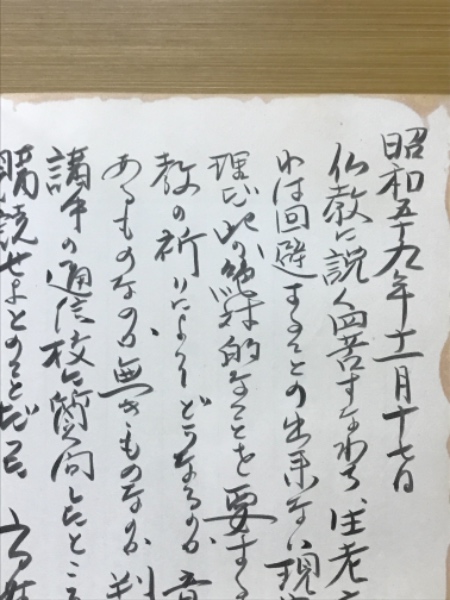 昭和五十九年十一月十七日
仏教に説く四苦すなわち、生老
れは回避することの出来ない現
理だ此の絶対的なことを要する
教の祈りによりどうなるのか
あるものなのか、無きものなのか判
講中の通信枝に質問したところ
購読せよとのことだ